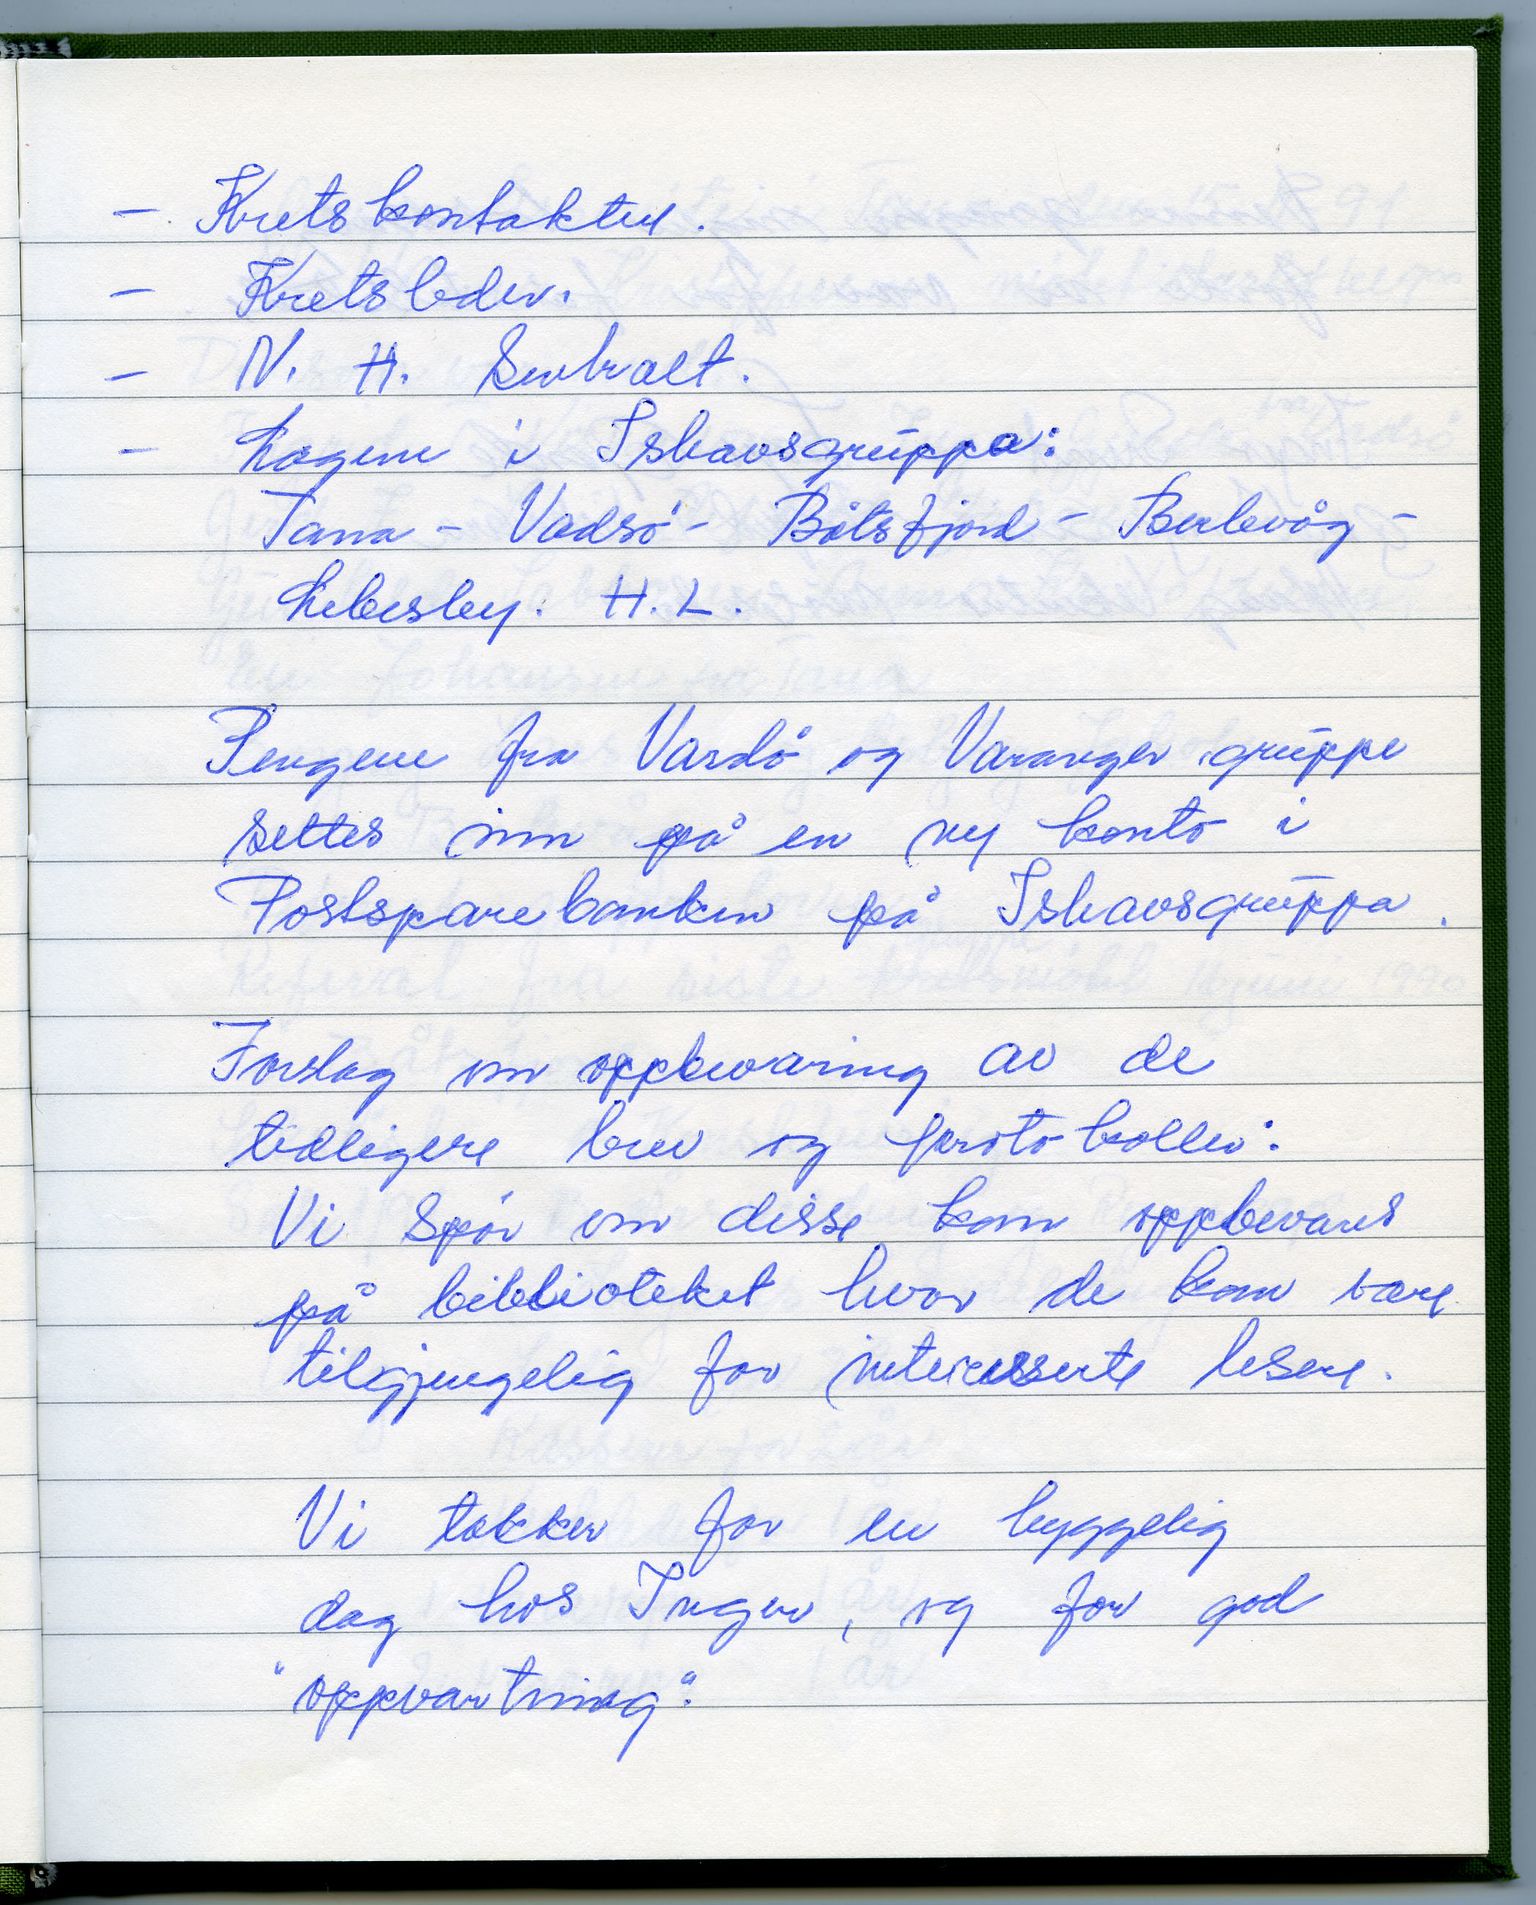 - Kretskontakter.
- Kretsleder.
- N. H. Sentralt.
- Lagene i Ishavsgruppa:
Tana - Vadsö - Båtsfjord - Berlevåg -
Lebesby. H.L.
Pengene fra Vardö og Varanger gruppe
settes inn på en ny konto i
Postsparebanken på Ishavsgruppa.
Forslag om oppbevaring av de
tidligere brev og protokoller:
Vi spör om disse kan oppbevares
på biblioteket hvor de kan være
tilgjengelig for interesserte lesere.
Vi takker for en hyggelig
dag hos Inger, og for god
"oppvartning".